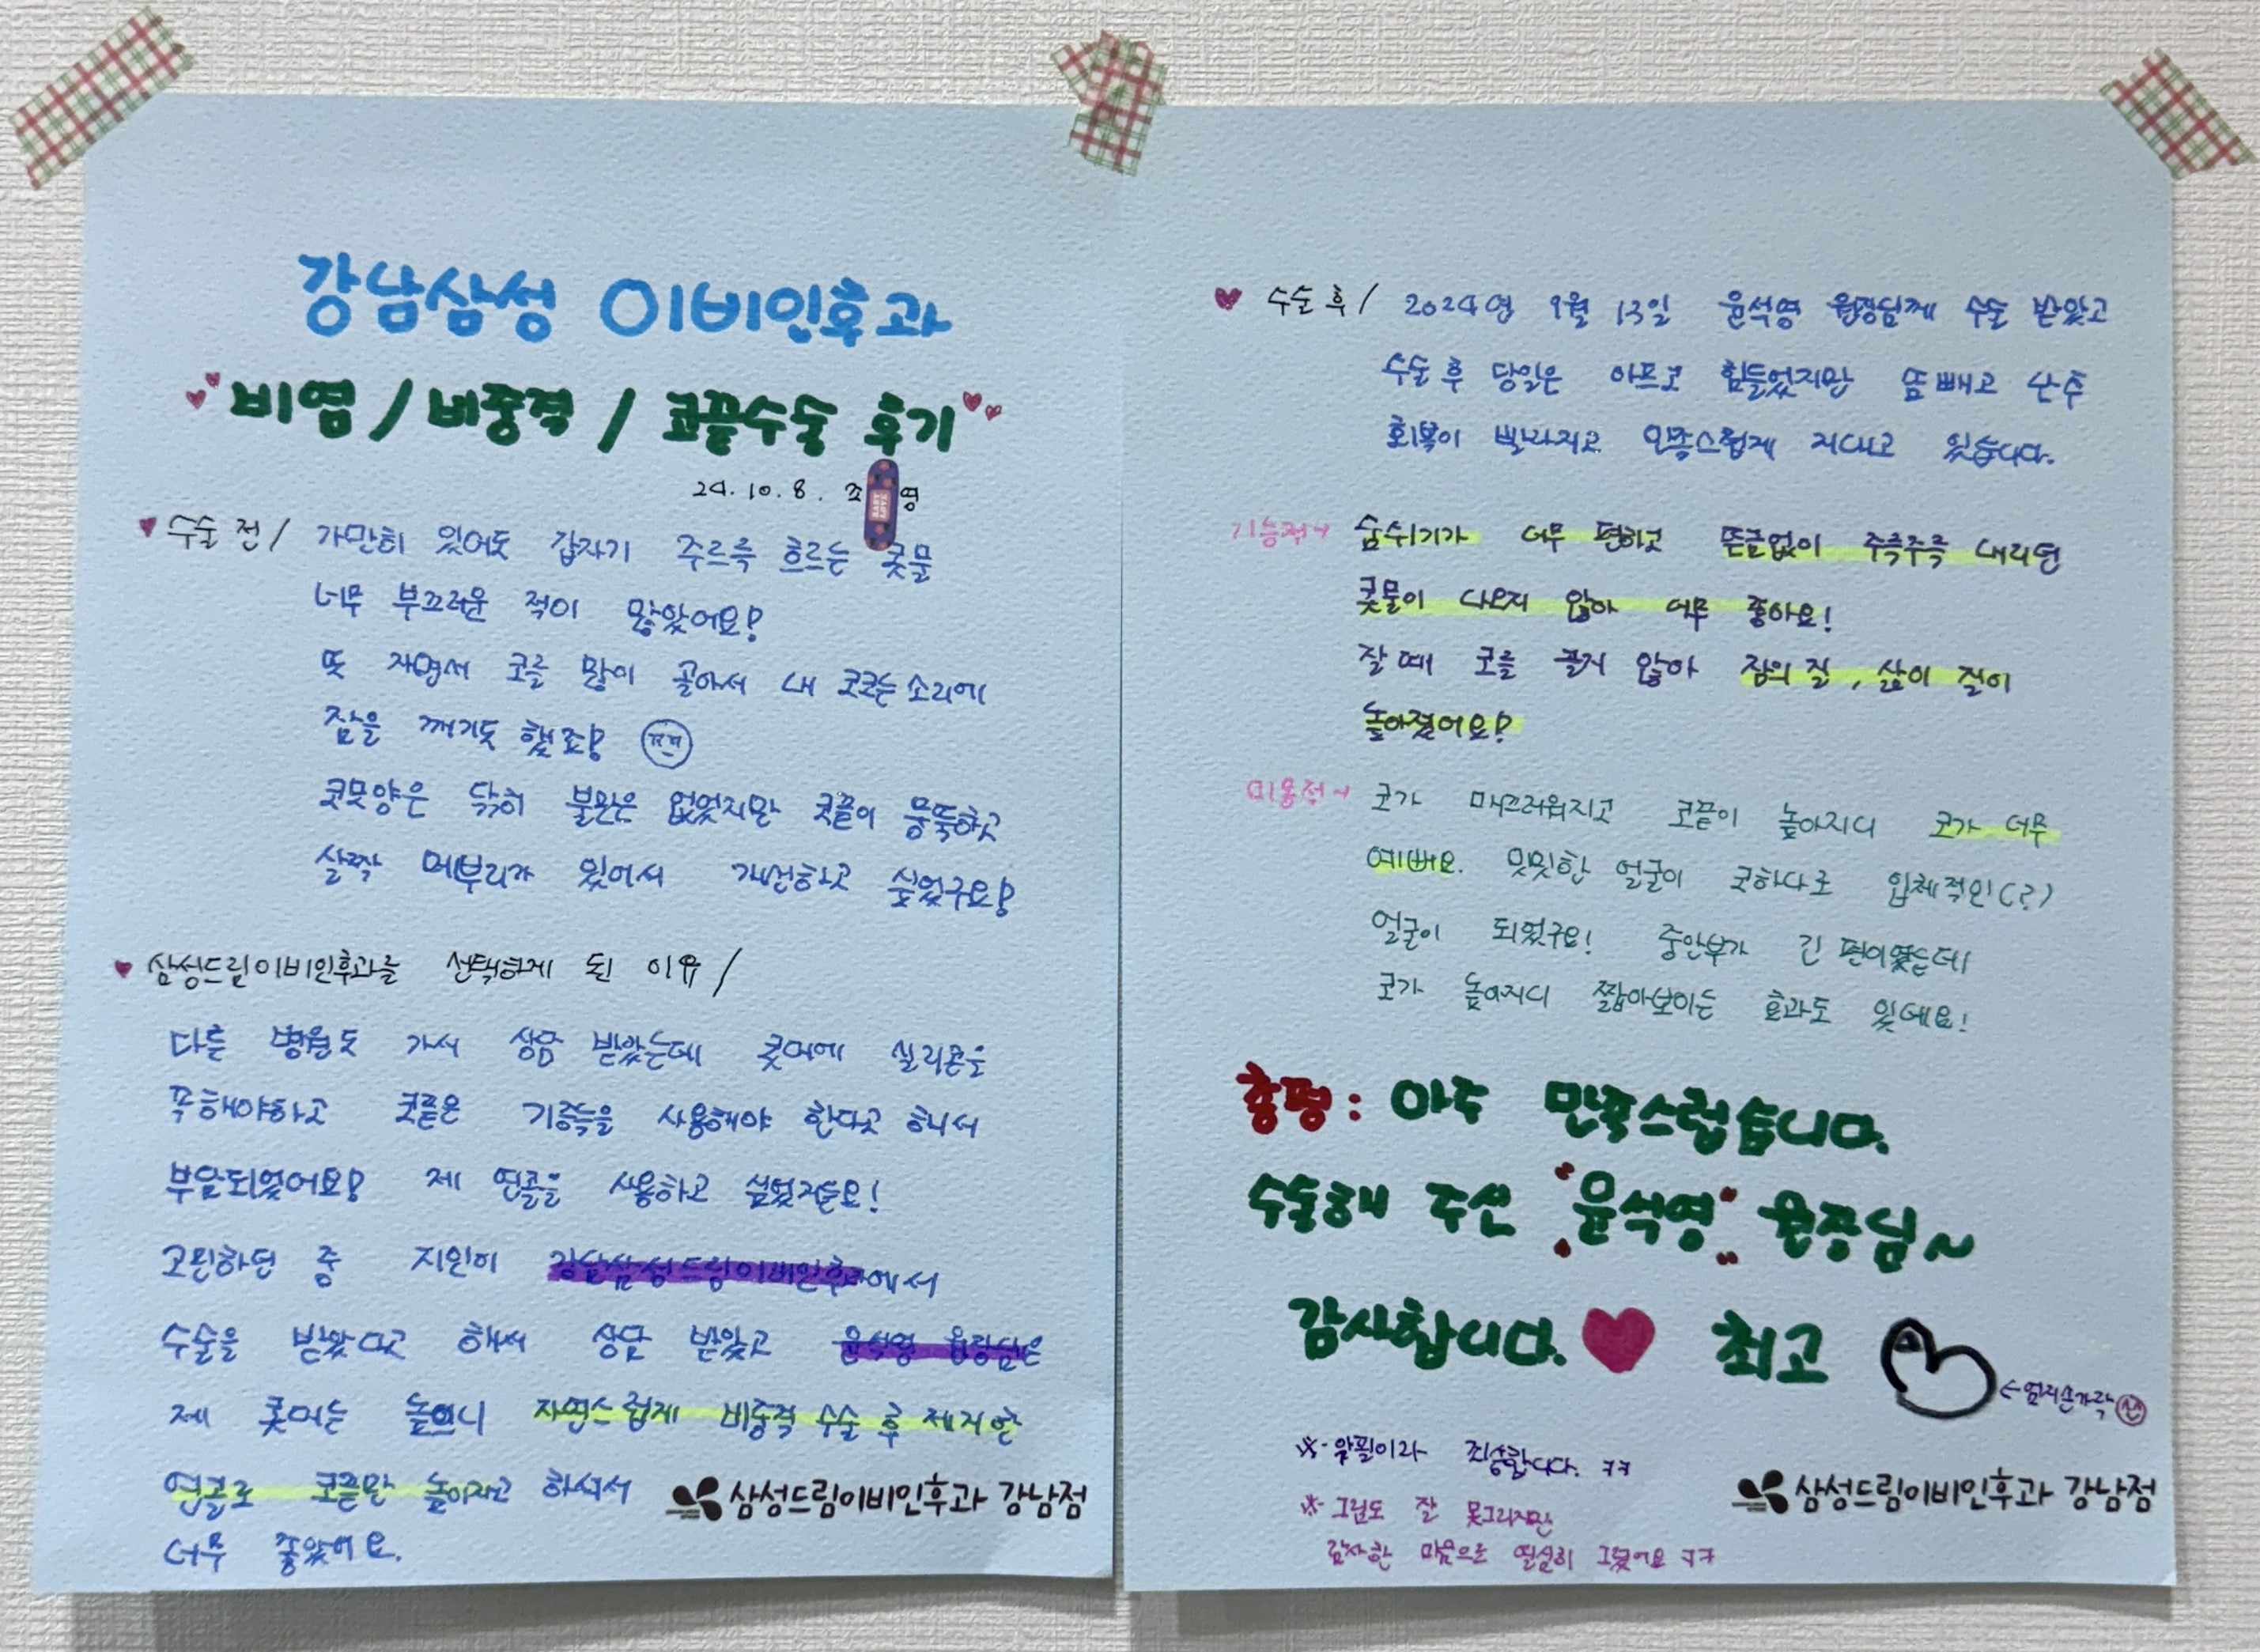 강남삼성 이비인후과
비염 / 비중격 / 코끝수술 후기
24. 10. 8. 조 영
수술 전 / 가만히 있어도 갑자기 주르륵 흐르는 콧물
너무 부끄러운 적이 많았어요!
또 자면서 코를 많이 골아서 내 코코는소리에
잠을 깨기도 했죠! ㅠㅠ
코모양은 딱히 불만은 없었지만 코끝이 뭉뚝하고
살짝 메부리가 있어서 개선하고 싶었구요!
삼성드림이비인후과를 선택하게 된 이유 /
다른 병원도 가서 상담 받았는데 콧대에 실리콘을
꼭해야하고 코끝은 기증늑을 사용해야 한다고 해서
부담되었어요! 제 연골을 사용하고 싶었거든요!
고민하던 중 지인이 강남삼성드림이비인후과에서
수술을 받았다고 해서 상담 받았고 윤석영 원장님은
제 콧대는 높으니 자연스럽게 비중격 수술 후 제거한
연골로 코끝만 높이자고 하셔서
너무 좋았어요.
삼성드림이비인후과 강남점
수술 후 / 2024년 9월 13일 윤석영 원장님께 수술 받았고
수술 후 당일은 아프고 힘들었지만 솜 빼고 난후
회복이 빨라지고 만족스럽게 지내고 있습니다.
기능적→ 숨쉬기가 너무 편하고 뜬금없이 주륵주륵 내리던
콧물이 나오지 않아 너무 좋아요!
잘 때 코를 골지 않아 잠의 질, 삶이 질이
높아졌어요!
미용적→ 코가 매끄러워지고 코끝이 높아지니 코가 너무
예뻐요. 밋밋한 얼굴이 코하나로 입체적인(?)
얼굴이 되었구요! 중안부가 긴 편이였는데
코가 높아지니 짧아보이는 효과도 있네요!
총평: 아주 만족스럽습니다.
수술해 주신 "윤석영" 원장님~
감사합니다. 최고
←엄지손가락
※ 악필이라 죄송합니다. ㅋㅋ
※ 그림도 잘 못그리지만
감사한 마음으로 열심히 그렸어요 ㅋㅋ
삼성드림이비인후과 강남점